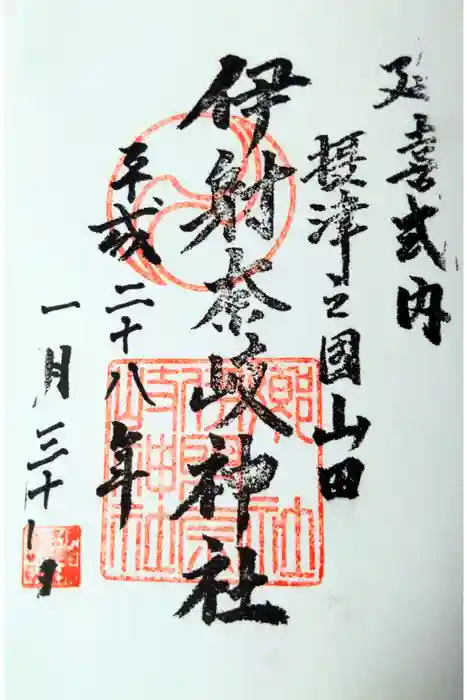 延喜式内
摂津之國山田
伊射奈岐神社
平成二十八年
一月三十日